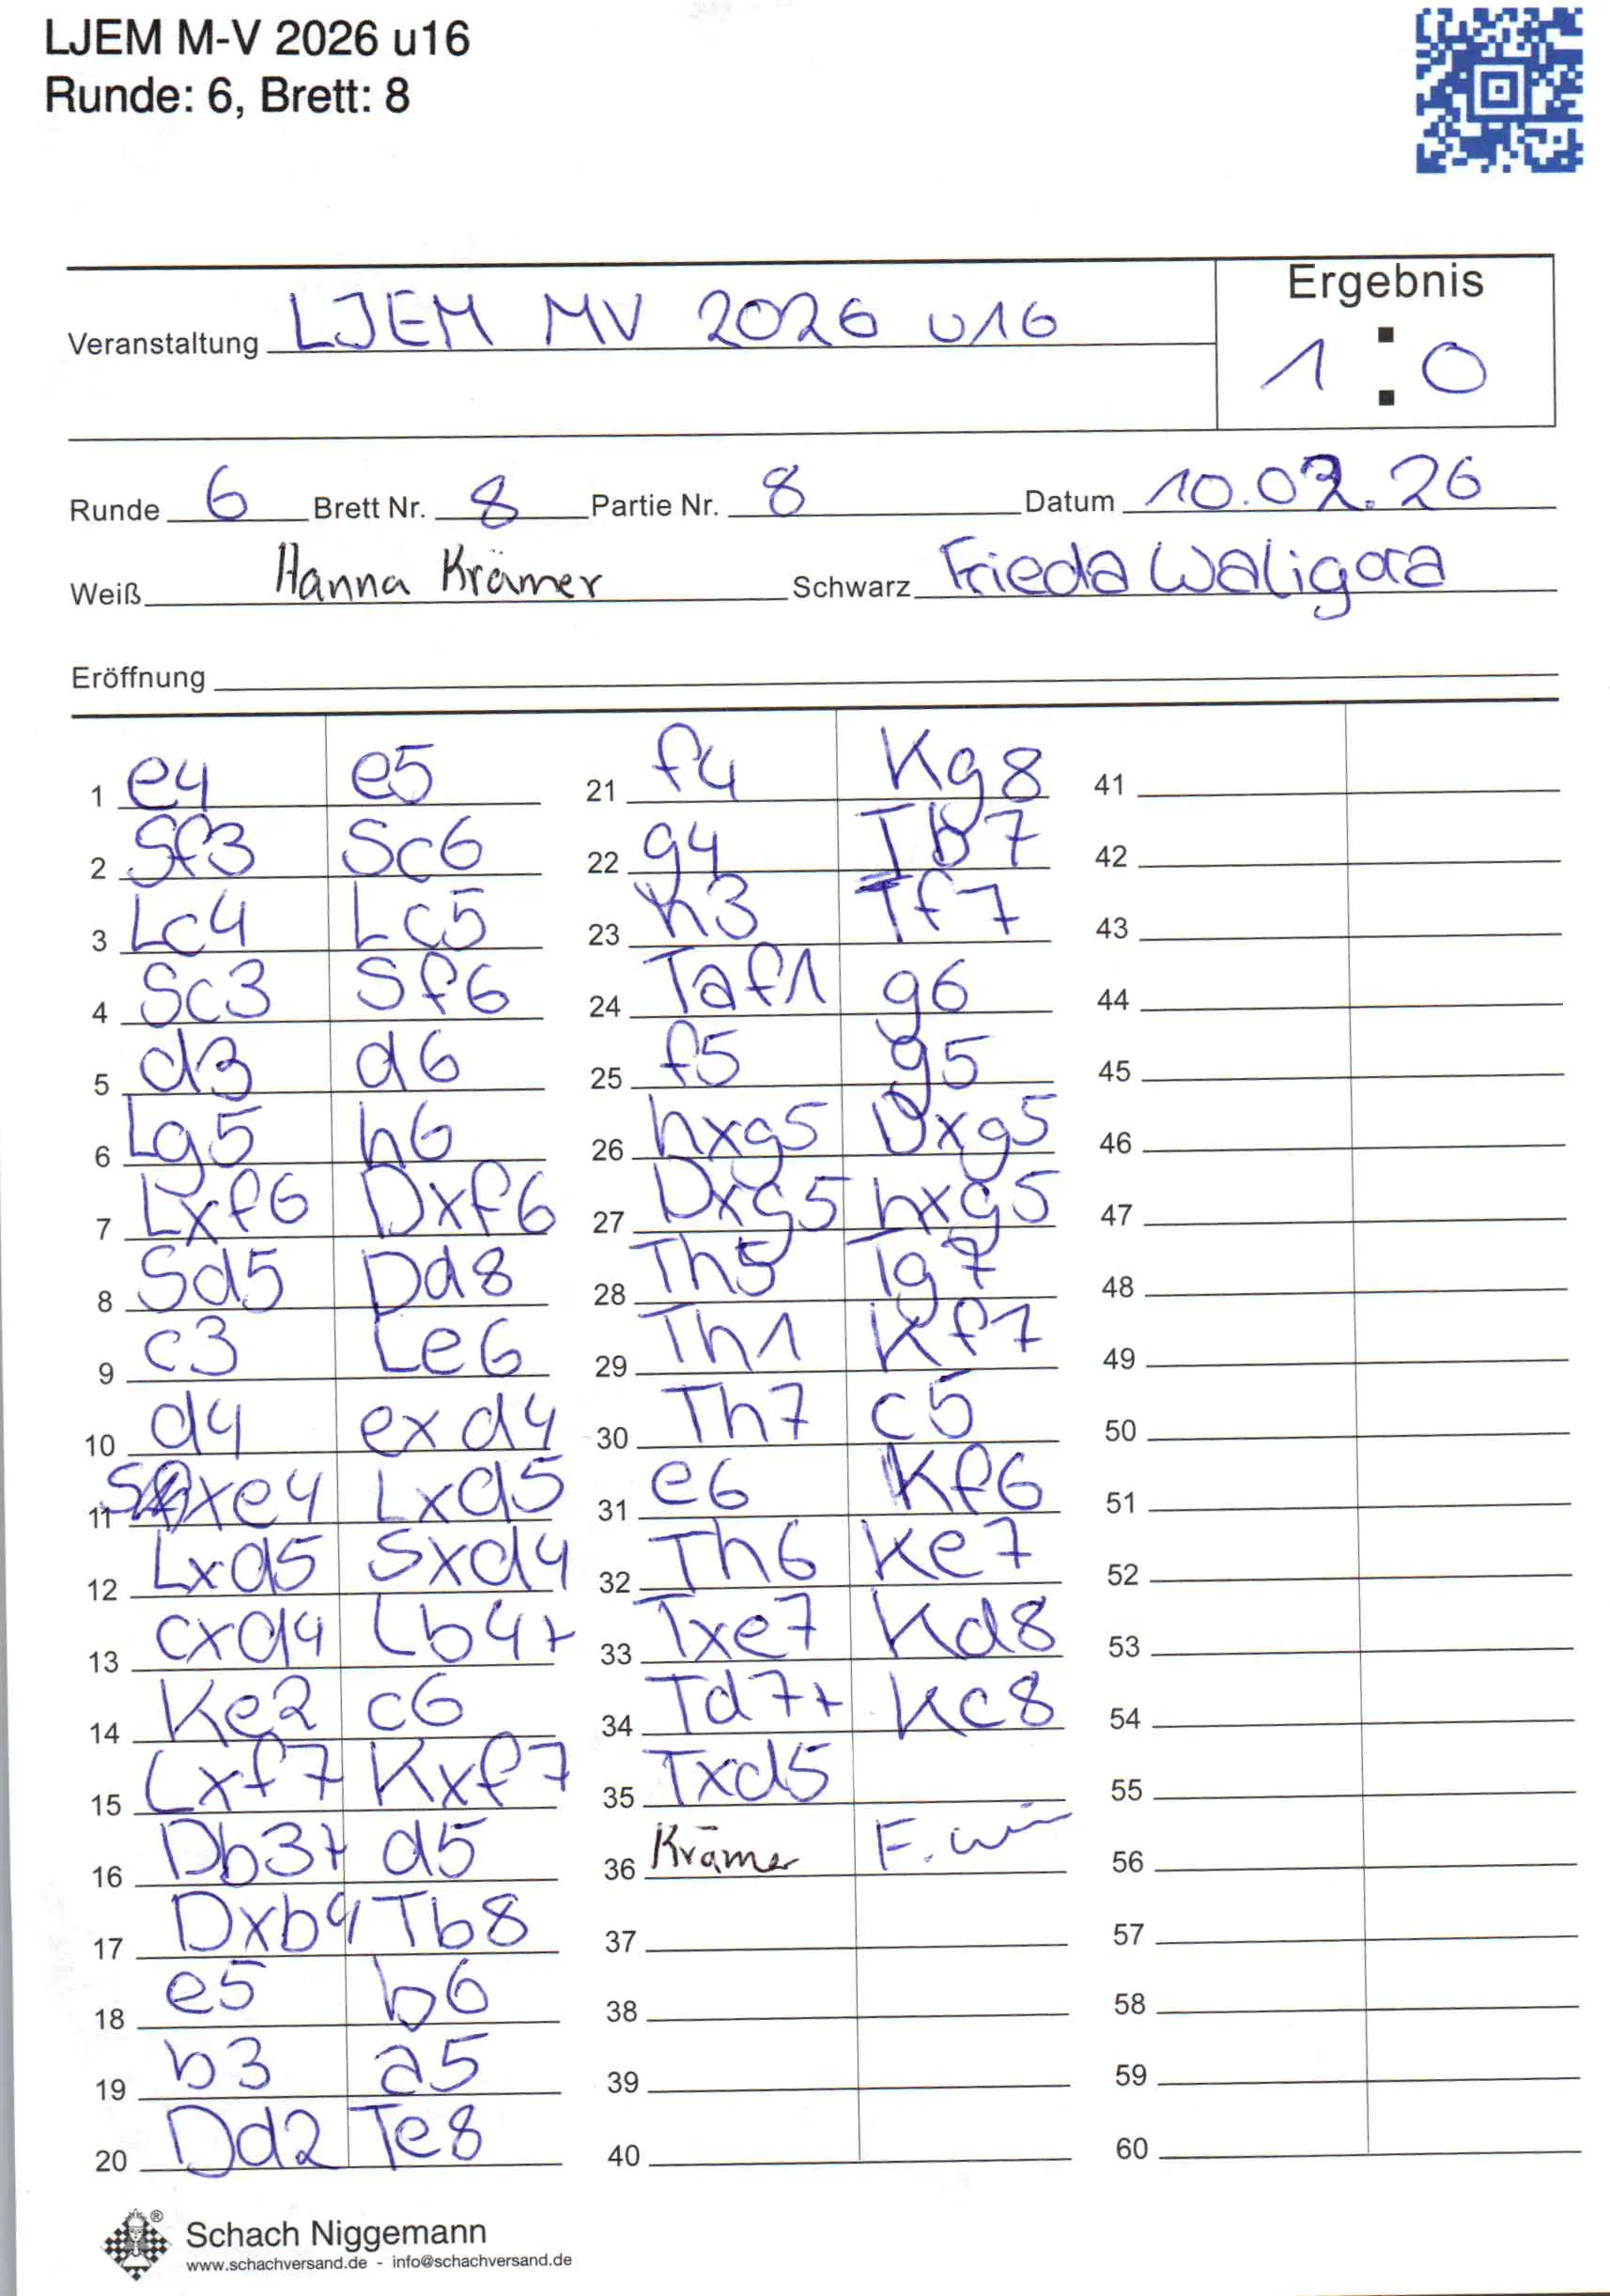 LJEM M-V 2026 u16
Runde: 6, Brett: 8
Ergebnis
Veranstaltung LJEM MV 2026 u16
1 : 0
Runde 6 Brett Nr. 8 Partie Nr. 8 Datum 10.02.26
Weiß Hanna Krämer Schwarz Frieda Waligora
Eröffnung
1 e4 e5
2 Sf3 Sc6
3 Lc4 Lc5
4 Sc3 Sf6
5 d3 d6
6 Lg5 h6
7 Lxf6 Dxf6
8 Sd5 Dd8
9 c3 Le6
10 d4 exd4
11 Sxe4 Lxd5
12 Lxd5 Sxd4
13 cxd4 Lb4+
14 Ke2 c6
15 Lxf7 Kxf7
16 Db3+ d5
17 Dxb4 Tb8
18 e5 b6
19 b3 a5
20 Dd2 Te8
21 f4 Kg8
22 g4 Tb7
23 h3 Tf7
24 Taf1 g6
25 f5 g5
26 hxg5 Dxg5
27 Dxg5 hxg5
28 Th5 Tg7
29 Th1 Kf7
30 Th7 c5
31 e6 Kf6
32 Th6 Ke7
33 Txe7 Kd8
34 Td7+ Kc8
35 Txd5
36 Krämer F.
37
38
39
40
41
42
43
44
45
46
47
48
49
50
51
52
53
54
55
56
57
58
59
60
Schach Niggemann
www.schachversand.de - info@schachversand.de